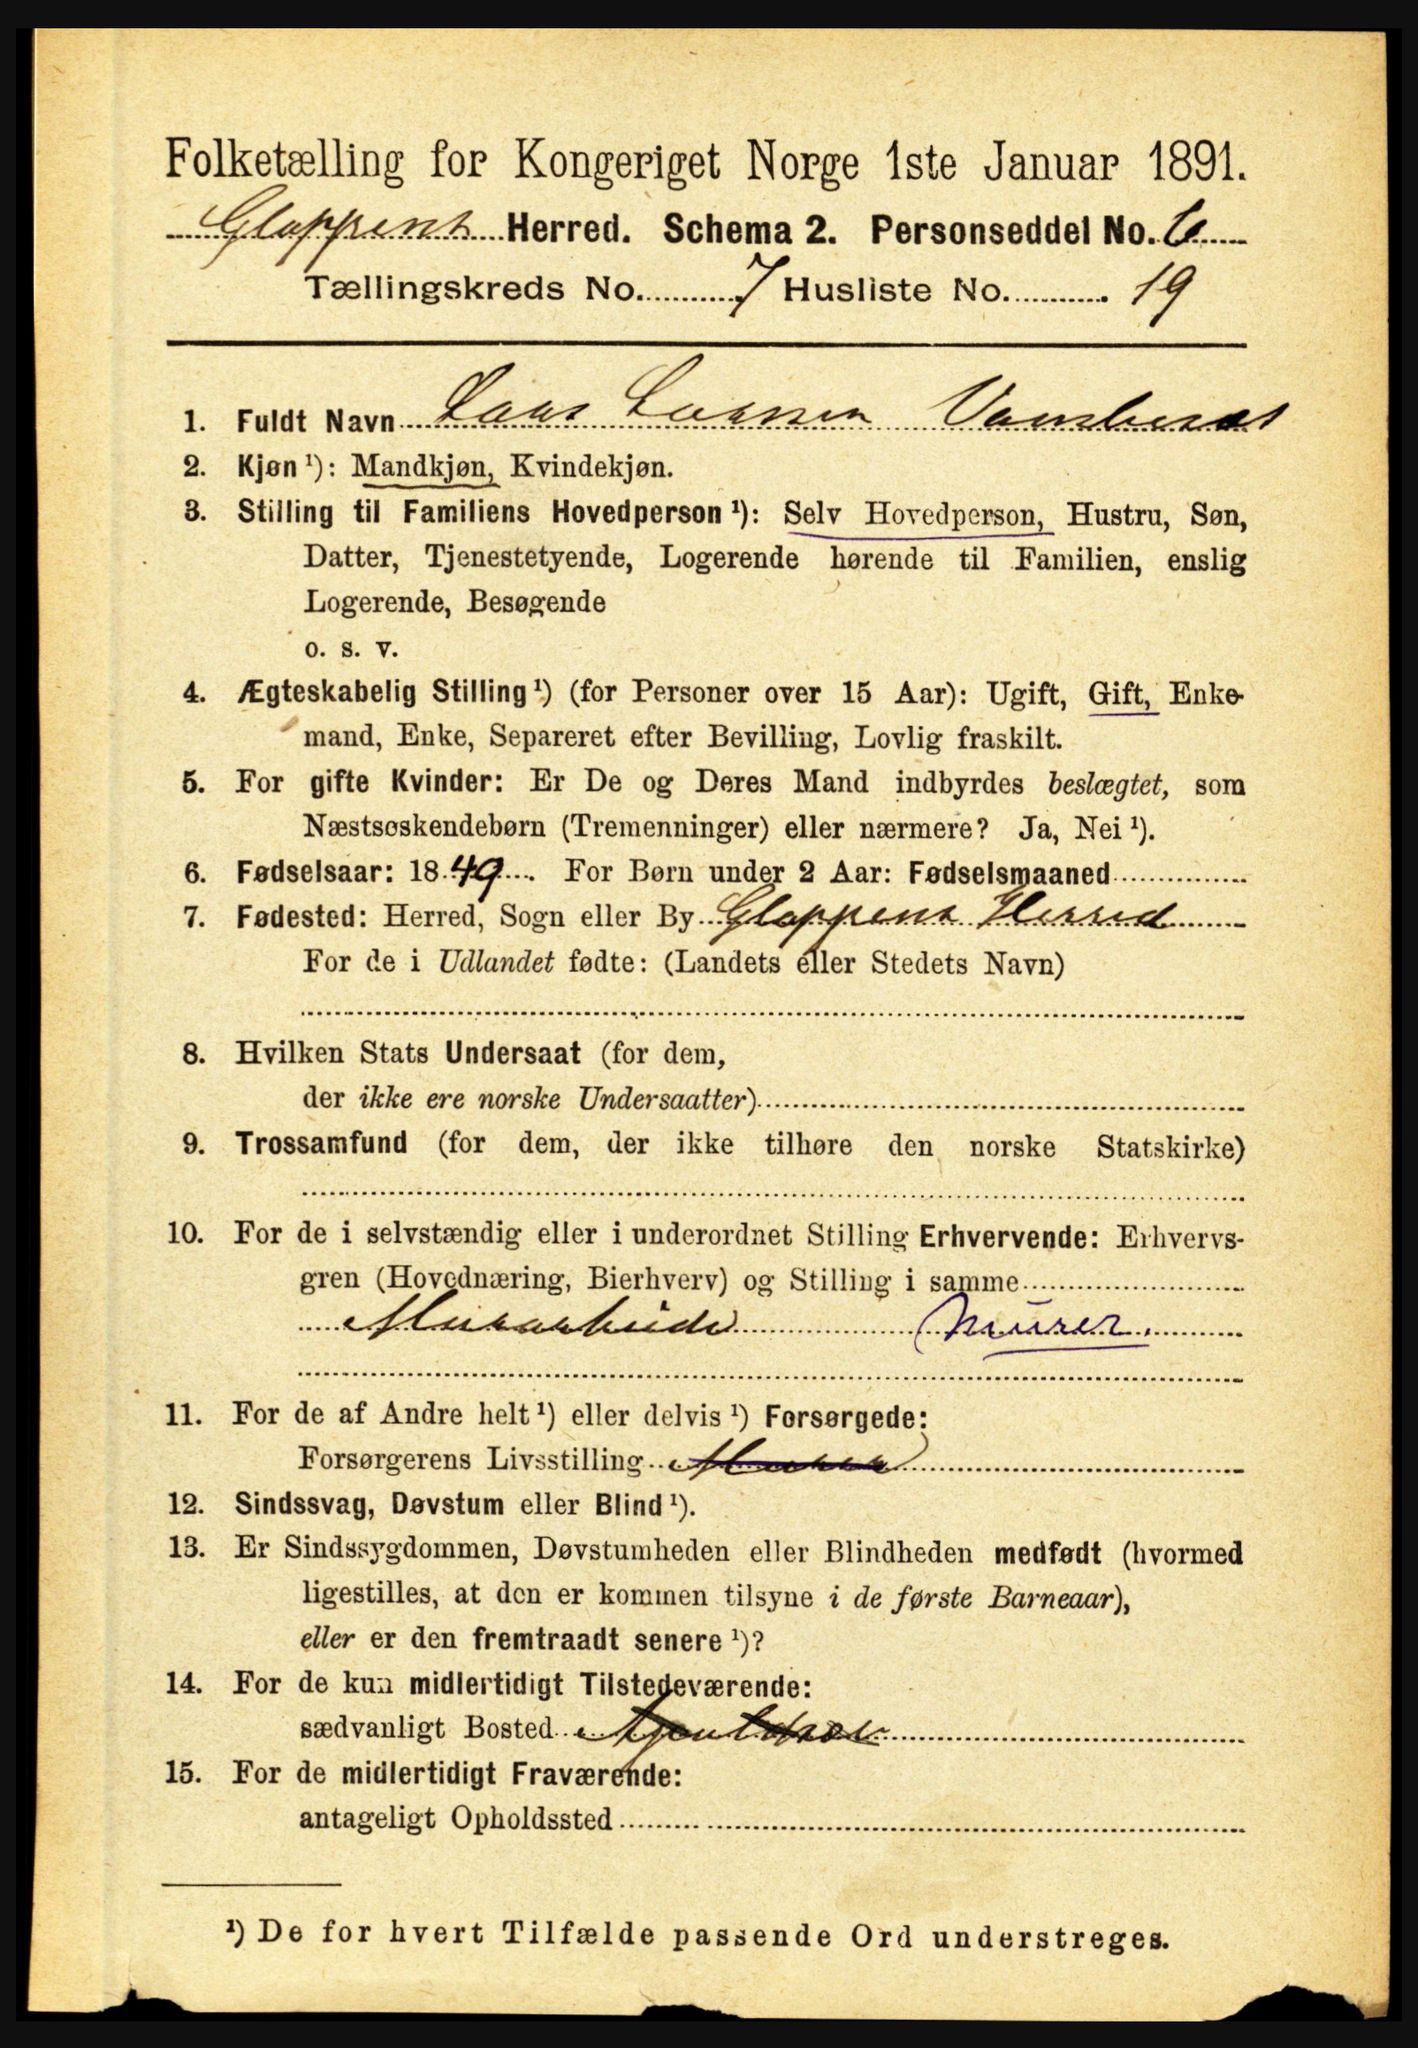 Folketælling for Kongeriget Norge 1ste Januar 1891.
Gloppens Herred. Schema 2. Personseddel No. 6
Tællingskreds No. 7 Husliste No. 19
1. Fuldt Navn Lars Larsen
2. Kjøn ¹): Mandkjøn, Kvindekjøn.
3. Stilling til Familiens Hovedperson ¹): Selv Hovedperson, Hustru, Søn,
Datter, Tjenestetyende, Logerende hørende til Familien, enslig
Logerende, Besøgende
o. s. v.
4. Ægteskabelig Stilling ¹) (for Personer over 15 Aar): Ugift, Gift, Enke-
mand, Enke, Separeret efter Bevilling, Lovlig fraskilt.
5. For gifte Kvinder: Er De og Deres Mand indbyrdes beslægtet, som
Næstsøskendebørn (Tremenninger) eller nærmere? Ja, Nei ¹).
6. Fødselsaar: 1849. For Børn under 2 Aar: Fødselsmaaned
7. Fødested: Herred, Sogn eller By Gloppens Herred
For de i Udlandet fødte: (Landets eller Stedets Navn)
8. Hvilken Stats Undersaat (for dem,
der ikke ere norske Undersaatter)
9. Trossamfund (for dem, der ikke tilhøre den norske Statskirke)
10. For de i selvstændig eller i underordnet Stilling Erhvervende: Erhvervs-
gren (Hovednæring, Bierhverv) og Stilling i samme
Murarbeide Murer.
11. For de af Andre helt ¹) eller delvis ¹) Forsørgede:
Forsørgerens Livsstilling Murer
12. Sindssvag, Døvstum eller Blind ¹).
13. Er Sindssygdommen, Døvstumheden eller Blindheden medfødt (hvormed
ligestilles, at den er kommen tilsyne i de første Barneaar),
eller er den fremtraadt senere ¹)?
14. For de kun midlertidigt Tilstedeværende:
sædvanligt Bosted
15. For de midlertidigt Fraværende:
antageligt Opholdssted
¹) De for hvert Tilfælde passende Ord understreges.